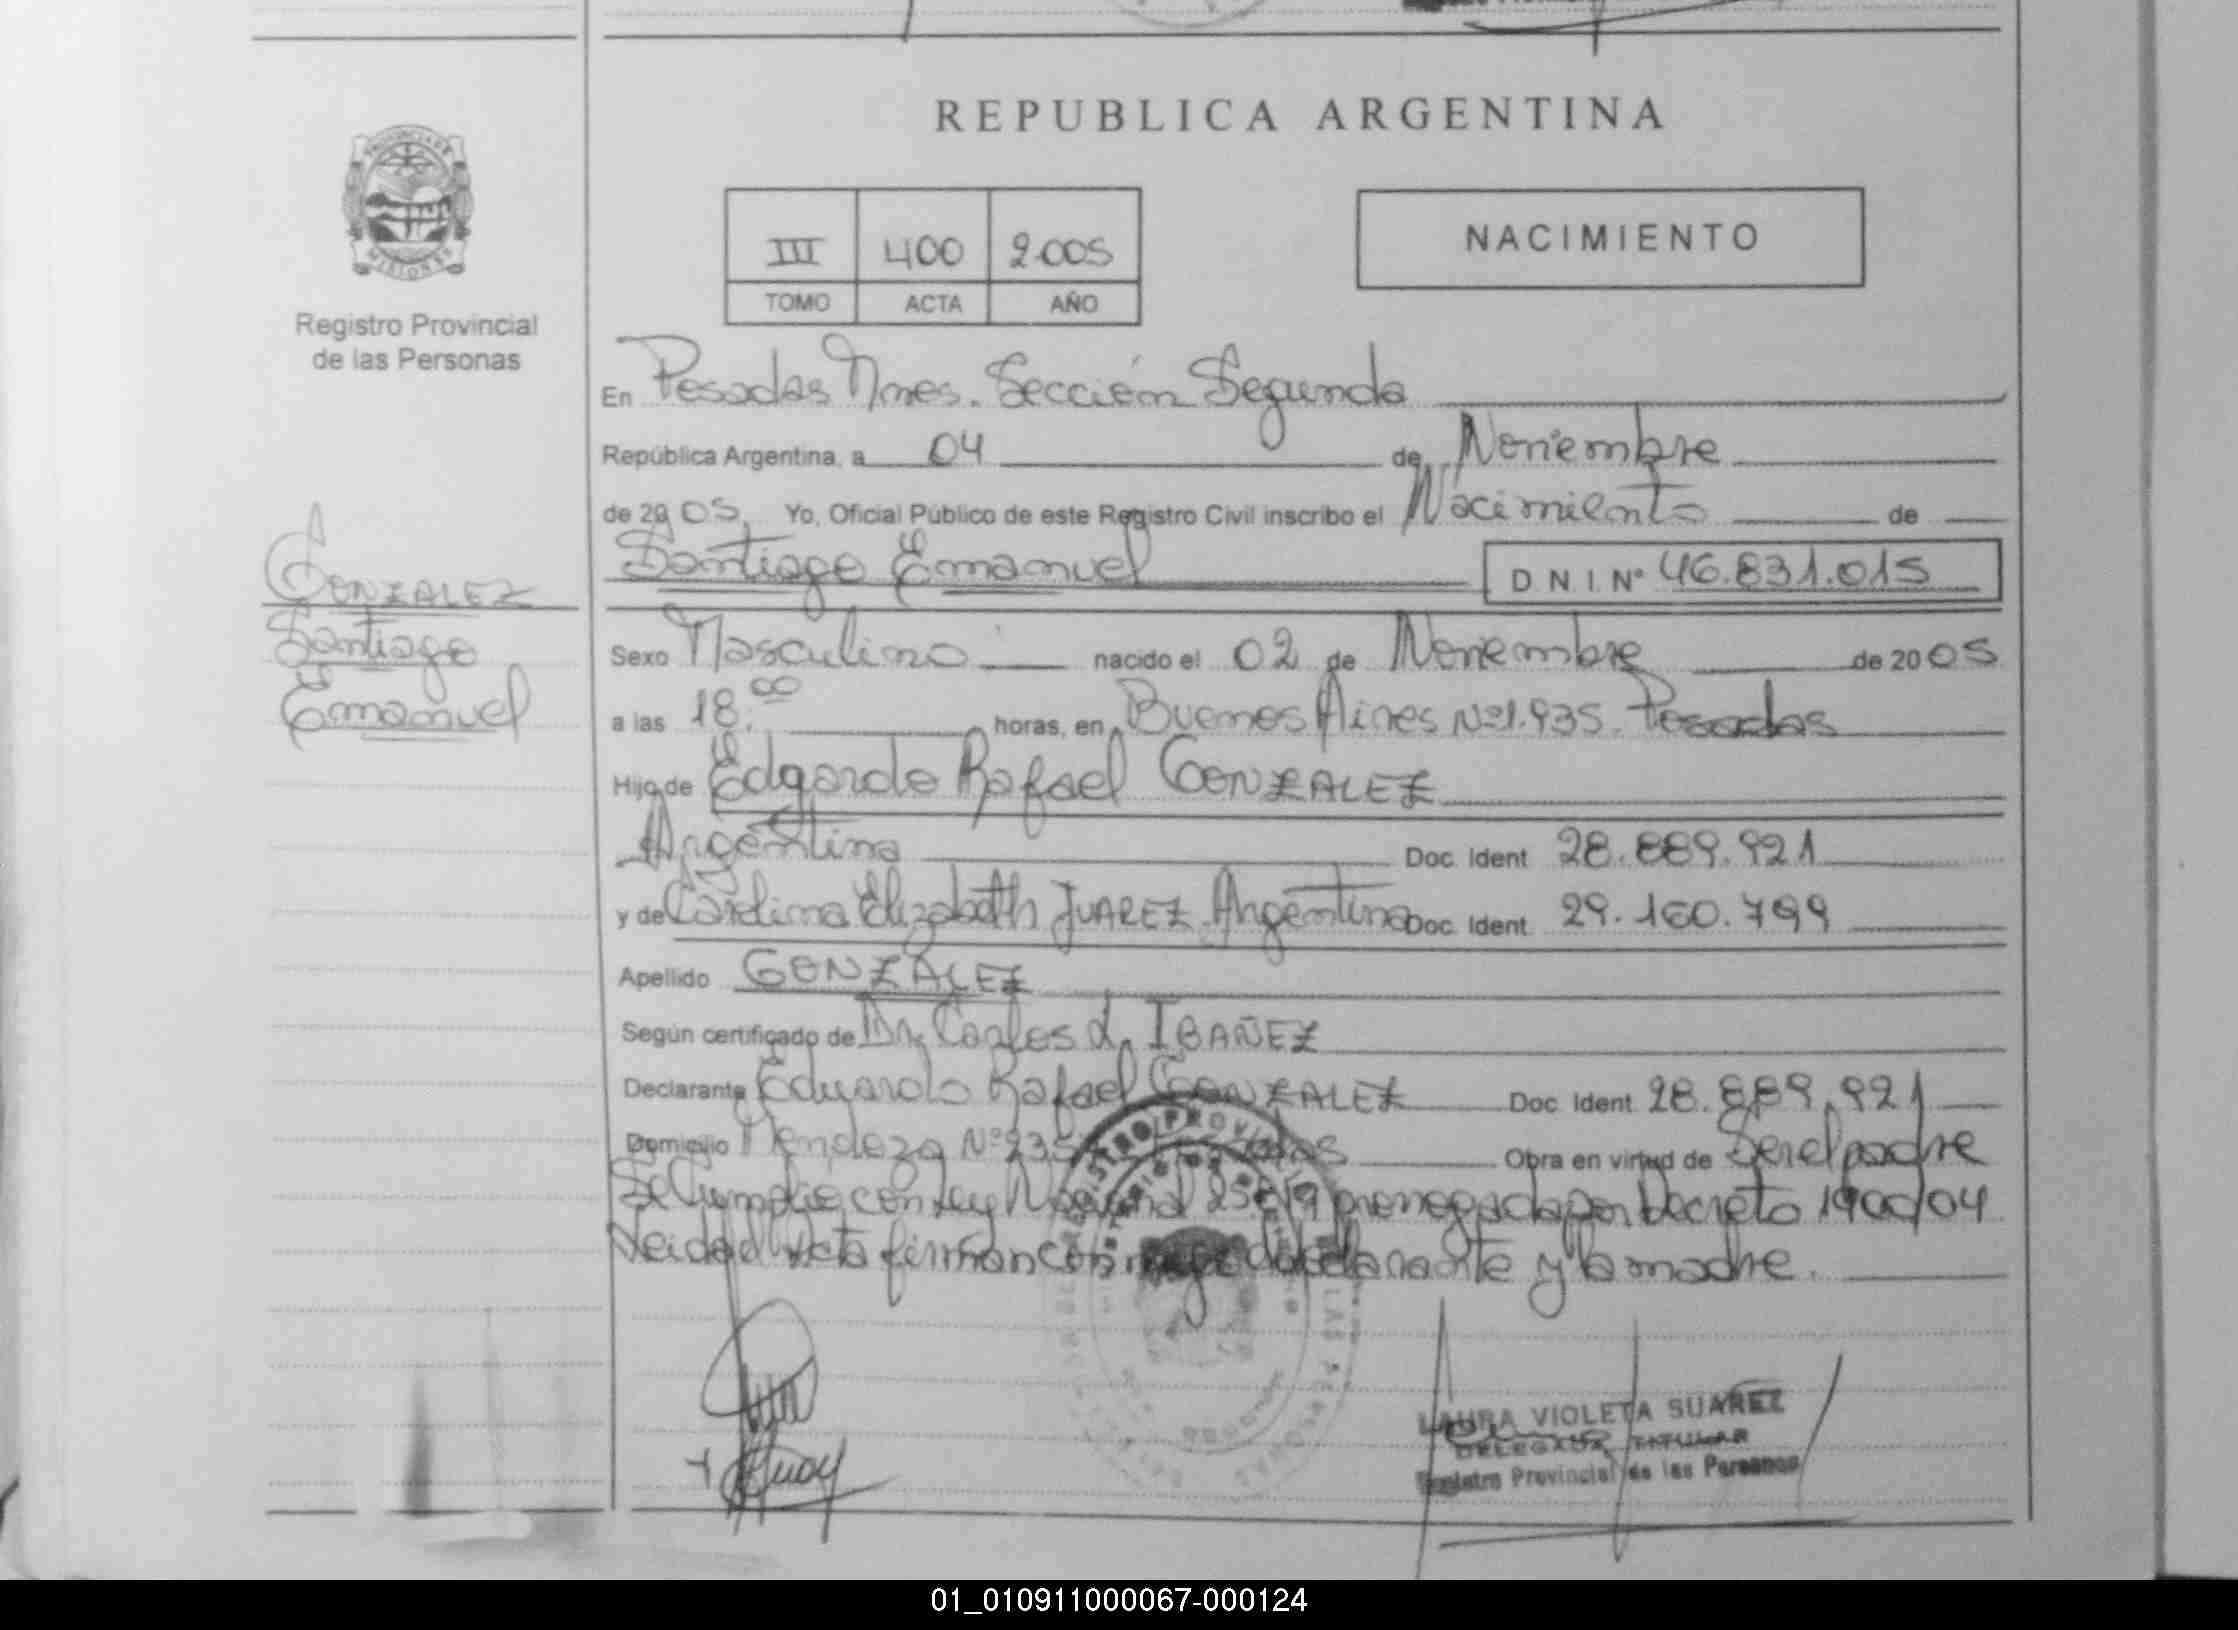 REPUBLICA ARGENTINA
PROVINCIA DE
MISIONES
Registro Provincial
de las Personas
III 400 2.005
TOMO ACTA AÑO
NACIMIENTO
En Posadas Mnes. Sección Segunda
República Argentina, a 04 de Noviembre
de 20 05. Yo, Oficial Público de este Registro Civil inscribo el Nacimiento de
Santiago Emanuel D N I. Nº 46.831.015
GONZALEZ
Santiago
Emanuel
Sexo Masculino nacido el 02 de Noviembre de 20 05
a las 18.00 horas, en Buenos Aires Nº 1.935. Posadas
Hijo de Edgardo Rafael GONZALEZ
Argentina Doc. Ident 28.889.921
y de Carolina Elizabeth JUAREZ Argentina Doc. Ident. 29.160.799
Apellido GONZALEZ
Según certificado de Dr. Carlos L. IBAÑEZ
Declarante Eduardo Rafael GONZALEZ Doc. Ident. 28.889.921
Domicilio Mendoza Nº 235 Obra en virtud de Ser el padre
Se Cumplio con Ley Nacional por Decreto 1900/04
Leida el Acta firman conmigo declarante y la madre.
LAURA VIOLETA SUAREZ
DELEGADA TITULAR
Registro Provincial de las Personas
01_010911000067-000124